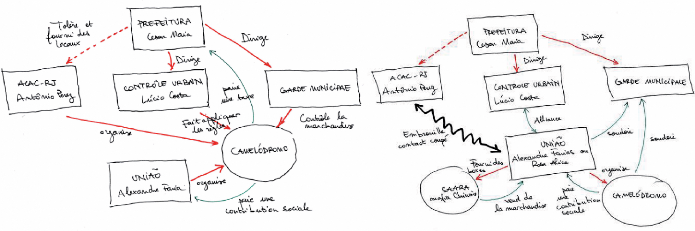 Tolère et
fournit des
locaux
PREFEITURA
Cesar Maia
Dirige
Dirige
ACAC-RJ
Antônio Peres
CONTRÔLE URBAIN
Lúcio Costa
GARDE MUNICIPALE
paie
une taxe
Fait appliquer
les règles
Contrôle la
marchandise
organise
CAMELÓDROMO
UNIÃO
Alexandre Farias
organise
paie une
contribution sociale
PREFEITURA
Cesar Maia
Dirige
Dirige
ACAC-RJ
Antônio Peres
CONTRÔLE URBAIN
Lúcio Costa
GARDE MUNICIPALE
Alliance
Embrouille
contact coupé
UNIÃO
Alexandre Farias ou
Rosa
soudoie
soudoie
Fournit des
organise
SAARA
CAMELÓDROMO
vend de
la marchandise
paie
une
contribution
sociale